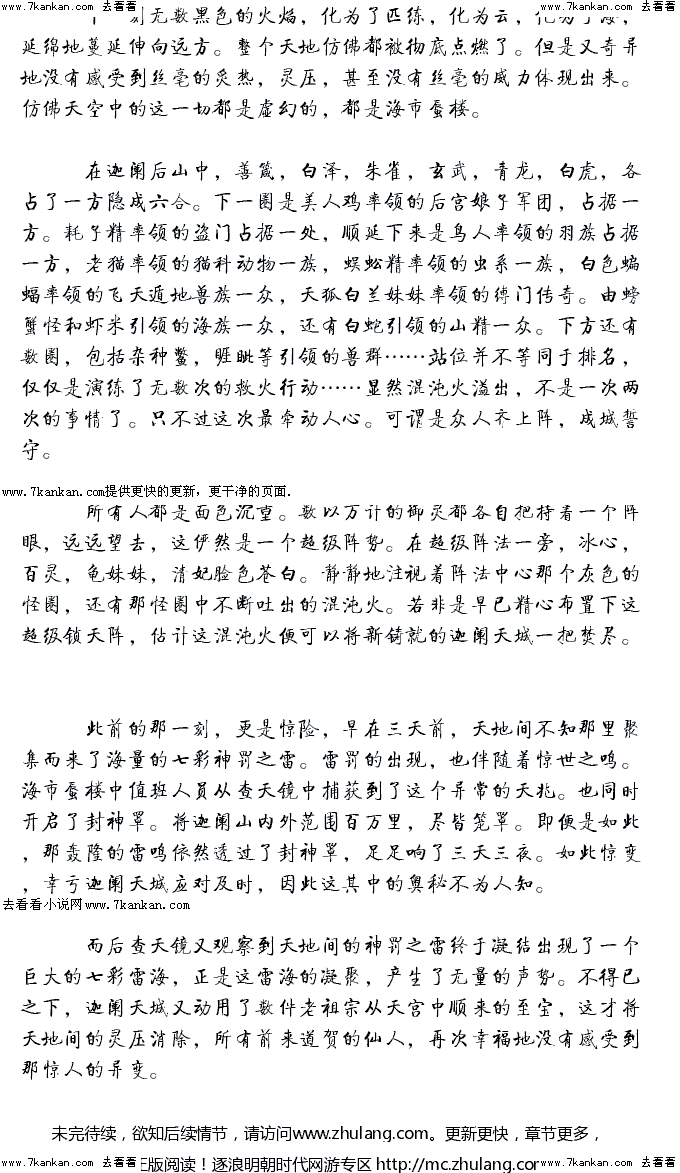 www.7kankan.com 去看看 www.7kankan.com 去看看 www.7kankan.com 去看看 www.7kankan.com 去看看 www.7kankan.com 去看看
刻无数黑色的火焰，化为了匹练，化为云，化为了海，
延绵地蔓延伸向远方。整个天地仿佛都被彻底点燃了。但是又奇异
地没有感受到丝毫的炙热，灵压，甚至没有丝毫的威力体现出来。
仿佛天空中的这一切都是虚幻的，都是海市蜃楼。
在迦阑后山中，善箴，白泽，朱雀，玄武，青龙，白虎，各
占了一方隐成六合。下一圈是美人鸡率领的后宫娘子军团，占据一
方。耗子精率领的盗门占据一处，顺延下来是鸟人率领的羽族占据
一方，老猫率领的猫科动物一族，蜈蚣精率领的虫系一族，白色蝙
蝠率领的飞天遁地兽族一众，天狐白兰妹妹率领的缚门传奇。由螃
蟹怪和虾米引领的海族一众，还有白蛇引领的山精一众。下方还有
数圈，包括杂种鳖，睚眦等引领的兽群……站位并不等同于排名，
仅仅是演练了无数次的救火行动……显然混沌火溢出，不是一次两
次的事情了。只不过这次最牵动人心。可谓是众人齐上阵，成城誓
守。
www.7kankan.com提供更快的更新，更干净的页面.
所有人都是面色沉重。数以万计的御灵都各自把持着一个阵
眼，远远望去，这俨然是一个超级阵势。在超级阵法一旁，冰心，
百灵，龟妹妹，清妃脸色苍白。静静地注视着阵法中心那个灰色的
怪圈，还有那怪圈中不断吐出的混沌火。若非是早已精心布置下这
超级锁天阵，估计这混沌火便可以将新铸就的迦阑天城一把焚尽。
此前的那一刻，更是惊险，早在三天前，天地间不知那里聚
集而来了海量的七彩神罚之雷。雷罚的出现，也伴随着惊世之鸣。
海市蜃楼中值班人员从查天镜中捕获到了这个异常的天兆。也同时
开启了封神罩。将迦阑山内外范围百万里，尽皆笼罩。即便是如此
，那轰隆的雷鸣依然透过了封神罩，足足响了三天三夜。如此惊变
，幸亏迦阑天城应对及时，因此这其中的奥秘不为人知。
去看看小说网www.7kankan.com
而后查天镜又观察到天地间的神罚之雷终于凝结出现了一个
巨大的七彩雷海，正是这雷海的凝聚，产生了无量的声势。不得已
之下，迦阑天城又动用了数件老祖宗从天宫中顺来的至宝，这才将
天地间的灵压消除，所有前来道贺的仙人，再次幸福地没有感受到
那惊人的异变。
未完待续，欲知后续情节，请访问www.zhulang.com。更新更快，章节更多，
www.7kankan.com 去看看 正版阅读！逐浪明朝时代网游专区 http://mc.zhulang.com www.7kankan.com 去看看